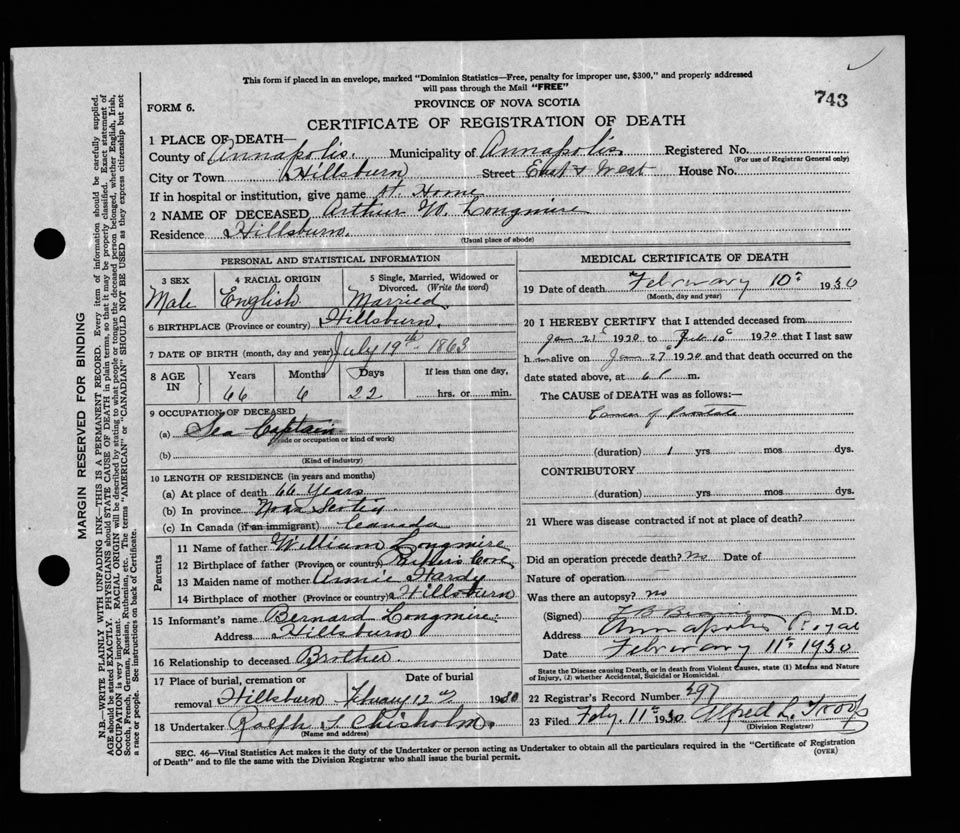 This form if placed in an envelope, marked "Dominion Statistics—Free, penalty for improper use, $300," and properly addressed
will pass through the Mail "FREE"
743
FORM 6.
PROVINCE OF NOVA SCOTIA
CERTIFICATE OF REGISTRATION OF DEATH
1 PLACE OF DEATH—
County of Annapolis. Municipality of Annapolis Registered No.
(For use of Registrar General only)
City or Town Hillsburn Street East & West House No.
If in hospital or institution, give name At Home
2 NAME OF DECEASED Arthur W. Longmire
Residence Hillsburn.
(Usual place of abode)
PERSONAL AND STATISTICAL INFORMATION
3 SEX Male
4 RACIAL ORIGIN English
5 Single, Married, Widowed or Divorced. (Write the word) Married
6 BIRTHPLACE (Province or country) Hillsburn.
7 DATE OF BIRTH (month, day and year) July 19th. 1863
8 AGE IN Years Months Days If less than one day,
66 6 22 hrs. or min.
9 OCCUPATION OF DECEASED
(a) Sea Captain
(Trade or occupation or kind of work)
(b)
(Kind of industry)
10 LENGTH OF RESIDENCE (in years and months)
(a) At place of death 66 Years
(b) In province Nova Scotia
(c) In Canada (if an immigrant) Canada
Parents
11 Name of father William Longmire
12 Birthplace of father (Province or country) Cove
13 Maiden name of mother Annie Hardy
14 Birthplace of mother (Province or country) Hillsburn
15 Informant's name Bernard Longmire
Address Hillsburn
16 Relationship to deceased Brother.
17 Place of burial, cremation or removal Hillsburn
Date of burial Febuary 12th 1930
18 Undertaker Ralph Chisholm.
(Name and address)
MEDICAL CERTIFICATE OF DEATH
19 Date of death February 10th 1930
(Month, day and year)
20 I HEREBY CERTIFY that I attended deceased from
Jan 21st 1930 to Feb 10 1930 that I last saw
h m alive on Jan 27 1930 and that death occurred on the
date stated above, at 6 P m.
The CAUSE of DEATH was as follows:—
Cancer of Prostate
(duration) 1 yrs mos dys.
CONTRIBUTORY
(duration) yrs. mos. dys.
21 Where was disease contracted if not at place of death?
Did an operation precede death? No Date of
Nature of operation
Was there an autopsy? No
(Signed) M.D.
Address Annapolis Royal
Date February 11th 1930
State the Disease causing Death, or in death from Violent Causes, state (1) Means and Nature
of Injury, (2) whether Accidental, Suicidal or Homicidal.
22 Registrar's Record Number 397
23 Filed Feby. 11th 1930 Alfred L. Troop
(Division Registrar)
SEC. 46—Vital Statistics Act makes it the duty of the Undertaker or person acting as Undertaker to obtain all the particulars required in the "Certificate of Registration
of Death" and to file the same with the Division Registrar who shall issue the burial permit.
(OVER)
MARGIN RESERVED FOR BINDING
N.B.—WRITE PLAINLY WITH UNFADING INK—THIS IS A PERMANENT RECORD. Every item of information should be carefully supplied.
AGE should be stated EXACTLY. PHYSICIANS should STATE CAUSE OF DEATH in plain terms, so that it may be properly classified. Exact statement of
OCCUPATION is very important. RACIAL ORIGIN will be described by stating to what people or tongue the deceased person belonged, whether English, Irish,
Scotch, French, German, Russian, Ruthenian, etc. The terms "AMERICAN" or "CANADIAN" SHOULD NOT BE USED as they express citizenship but not
a race or people. See instructions on back of Certificate.